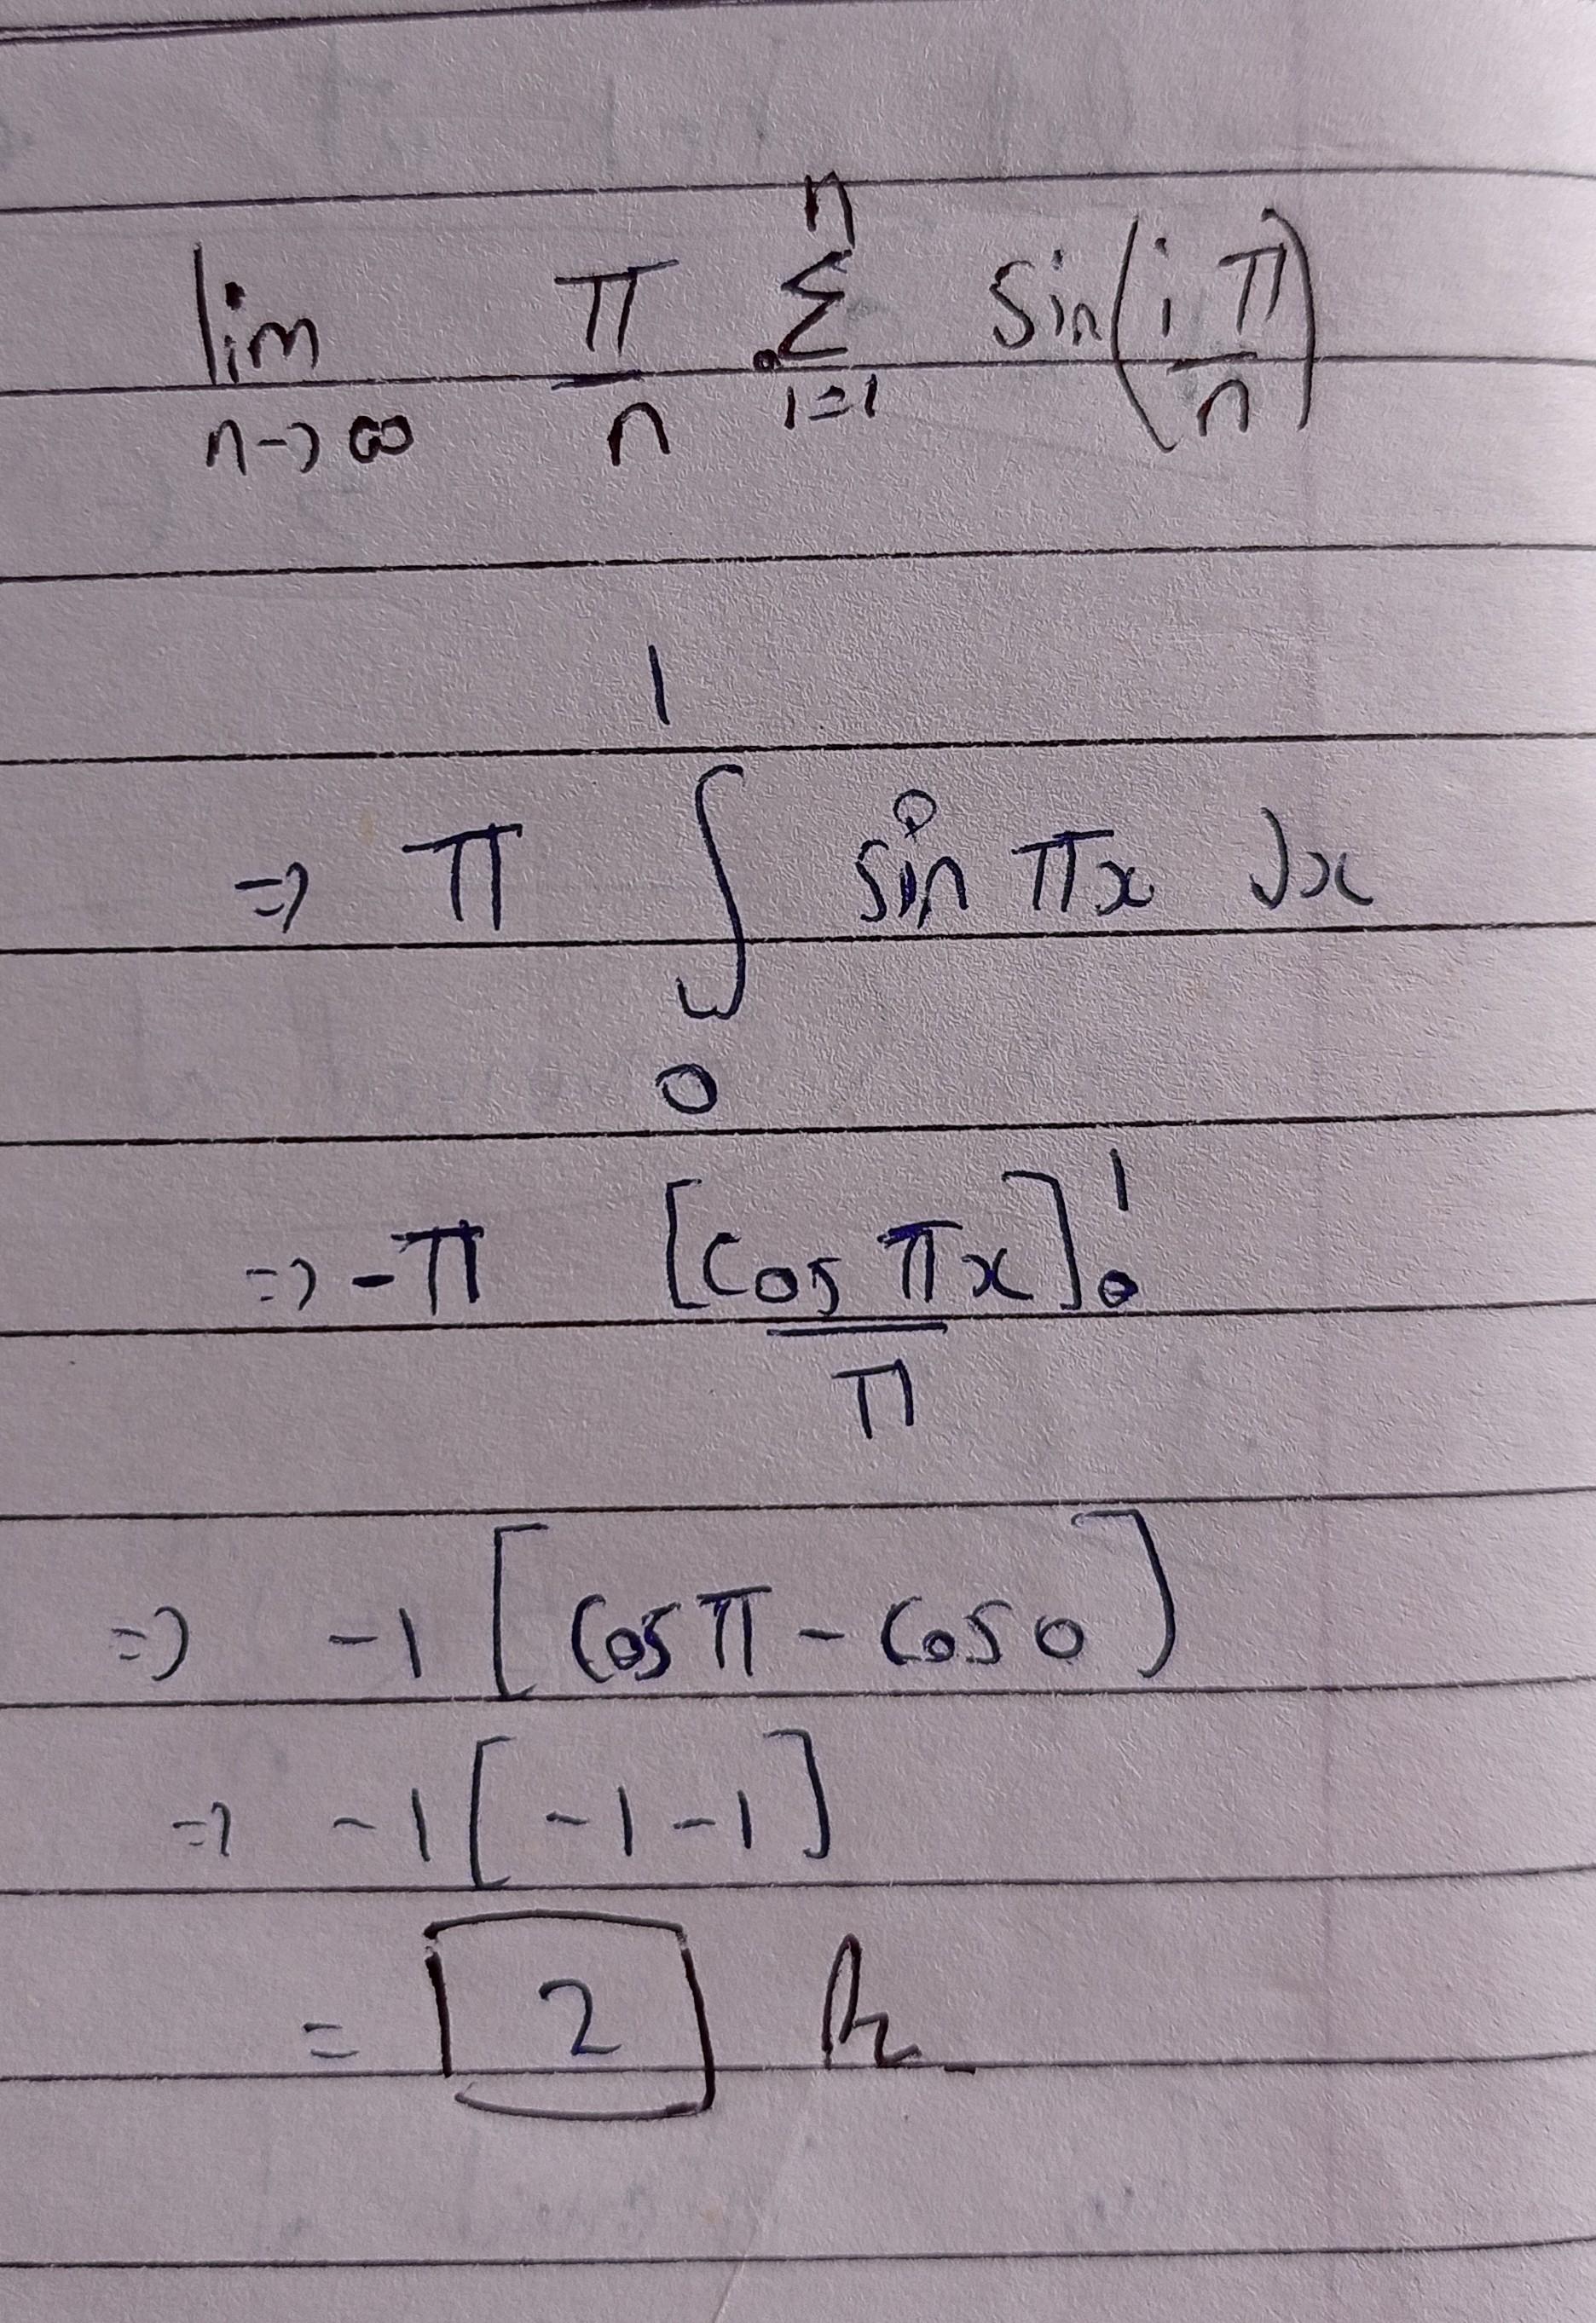 lim n→∞ π/n . Σ i=1 n sin(i π/n)
⇒ π ∫ 0 1 sin πx dx
⇒ -π [cos πx]/π 0 1
⇒ -1 [cos π - cos 0]
⇒ -1 [-1-1]
= 2